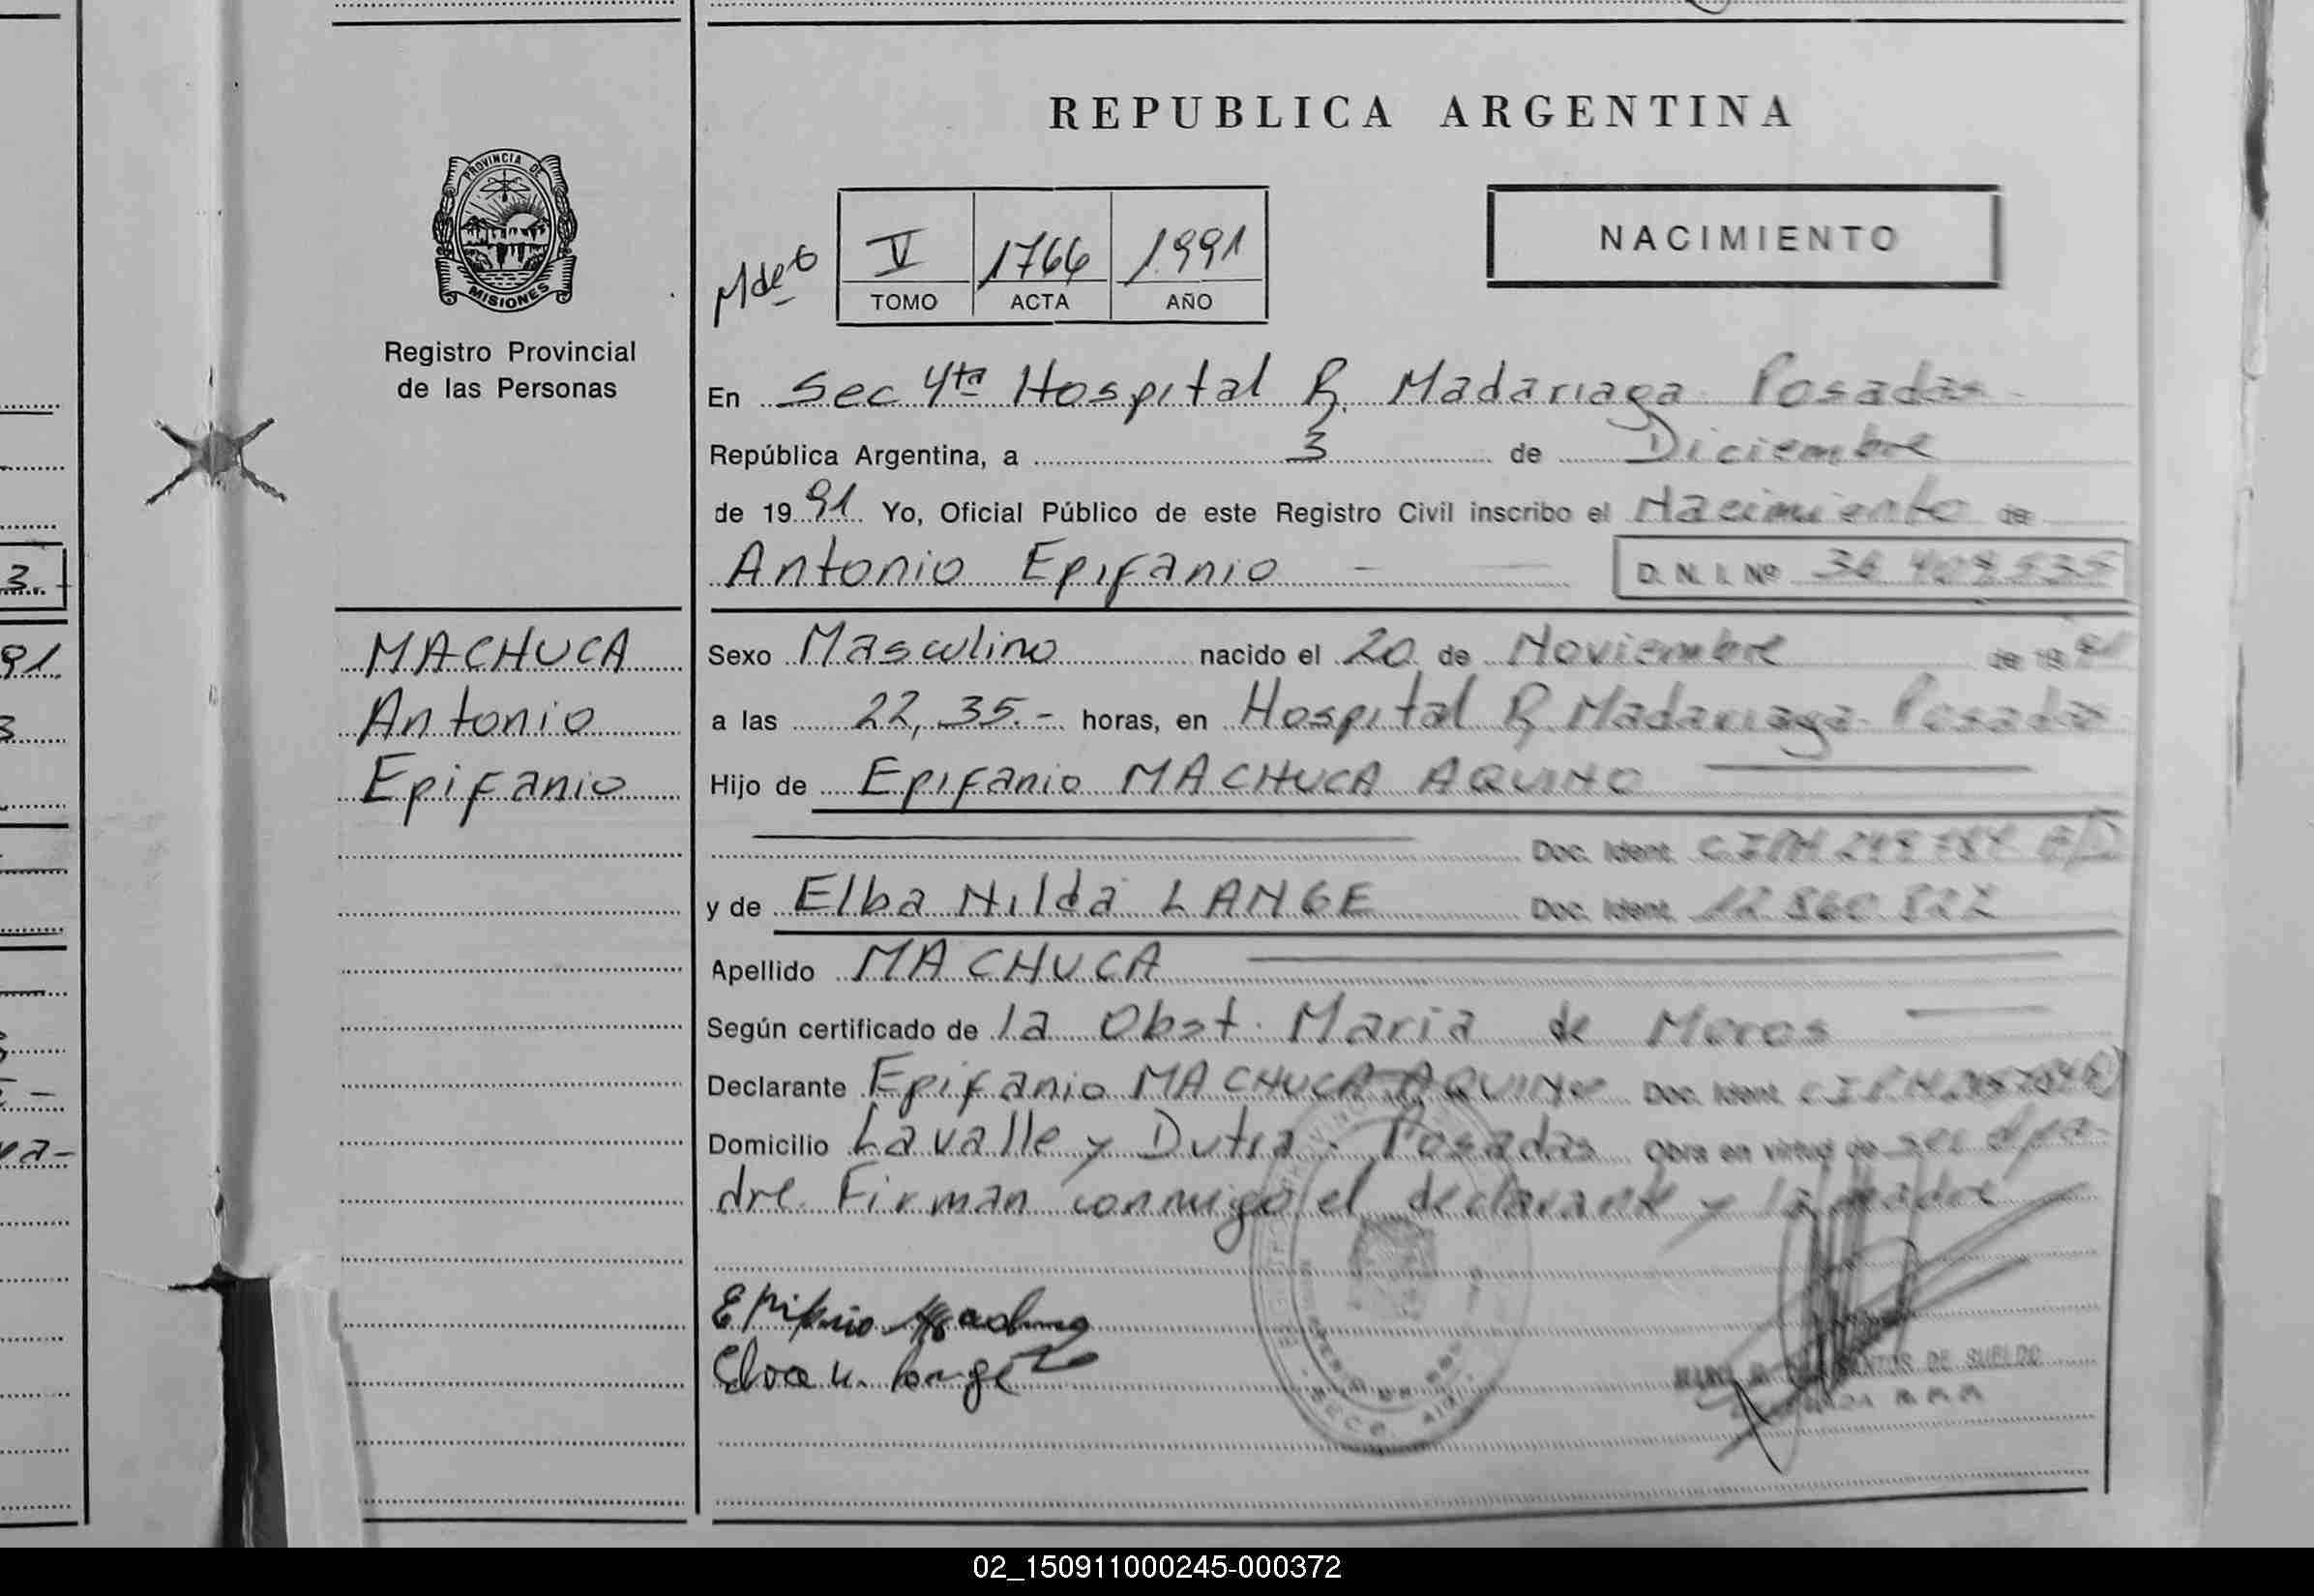 REPUBLICA ARGENTINA
PROVINCIA DE
MISIONES
Registro Provincial
de las Personas
V 1766 1991
TOMO ACTA AÑO
NACIMIENTO
En Sec 4ta Hospital R. Madariaga Posadas
República Argentina, a 3 de Diciembre
de 1991 Yo, Oficial Público de este Registro Civil inscribo el Nacimiento de
Antonio Epifanio D. N. I. Nº
MACHUCA
Antonio
Epifanio
Sexo Masculino nacido el 20 de Noviembre de 1991
a las 22,35.- horas, en Hospital R. Madariaga Posadas
Hijo de Epifanio MACHUCA AQUINO
Doc. Ident.
y de Elba Nilda LANGE Doc. Ident. 12.860.822
Apellido MACHUCA
Según certificado de la Obst. Maria de Meros
Declarante Epifanio MACHUCA AQUINO Doc. Ident.
Domicilio Lavalle y Dutra. Posadas Obra en virtud de ser el pa-
dre. Firman conmigo el declarante y la madre
SANTOS DE SUELDO
3.-
91
02_150911000245-000372